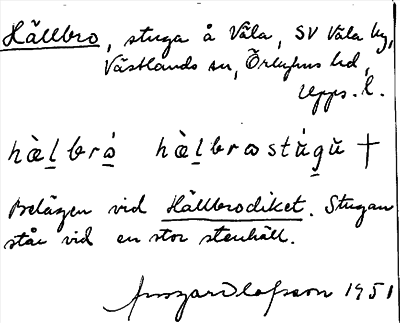 Hällbro, stuga å Våla, SV Våla by,
Västlands sn, Örbyhus hd,
Upps. l.
hæ̀l̠brǻ̠ hæ̀l̠brostúg̠ŭ †
Belägen vid Hällbrodiket. Stugan
står vid en stor stenhäll.
Olofsson 1951